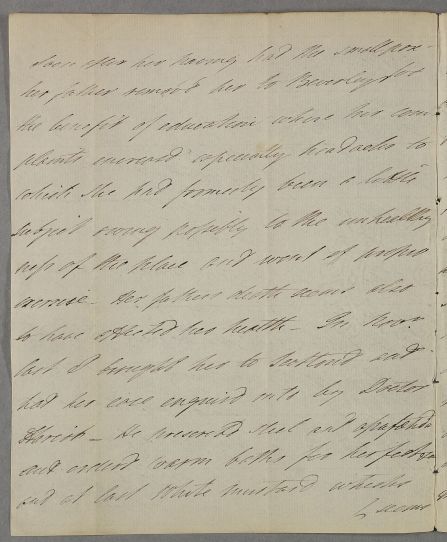 Soon after her having had the small pox
her father remov'd her to Beverley for
the benefit of education where her com
plaints encreas'd especially headachs to
which she had formerly been a little
subject owing possibly to the unhealthy
ness of the place and want of proper
exercise - Her fathers death seems also
to have affected her health - In Novr.
last I brought her to Scotland and
had her case enquired into by Doctor
- He prescrib'd steel and assafoetida
and order'd warm baths for her feet
and at last White mustard